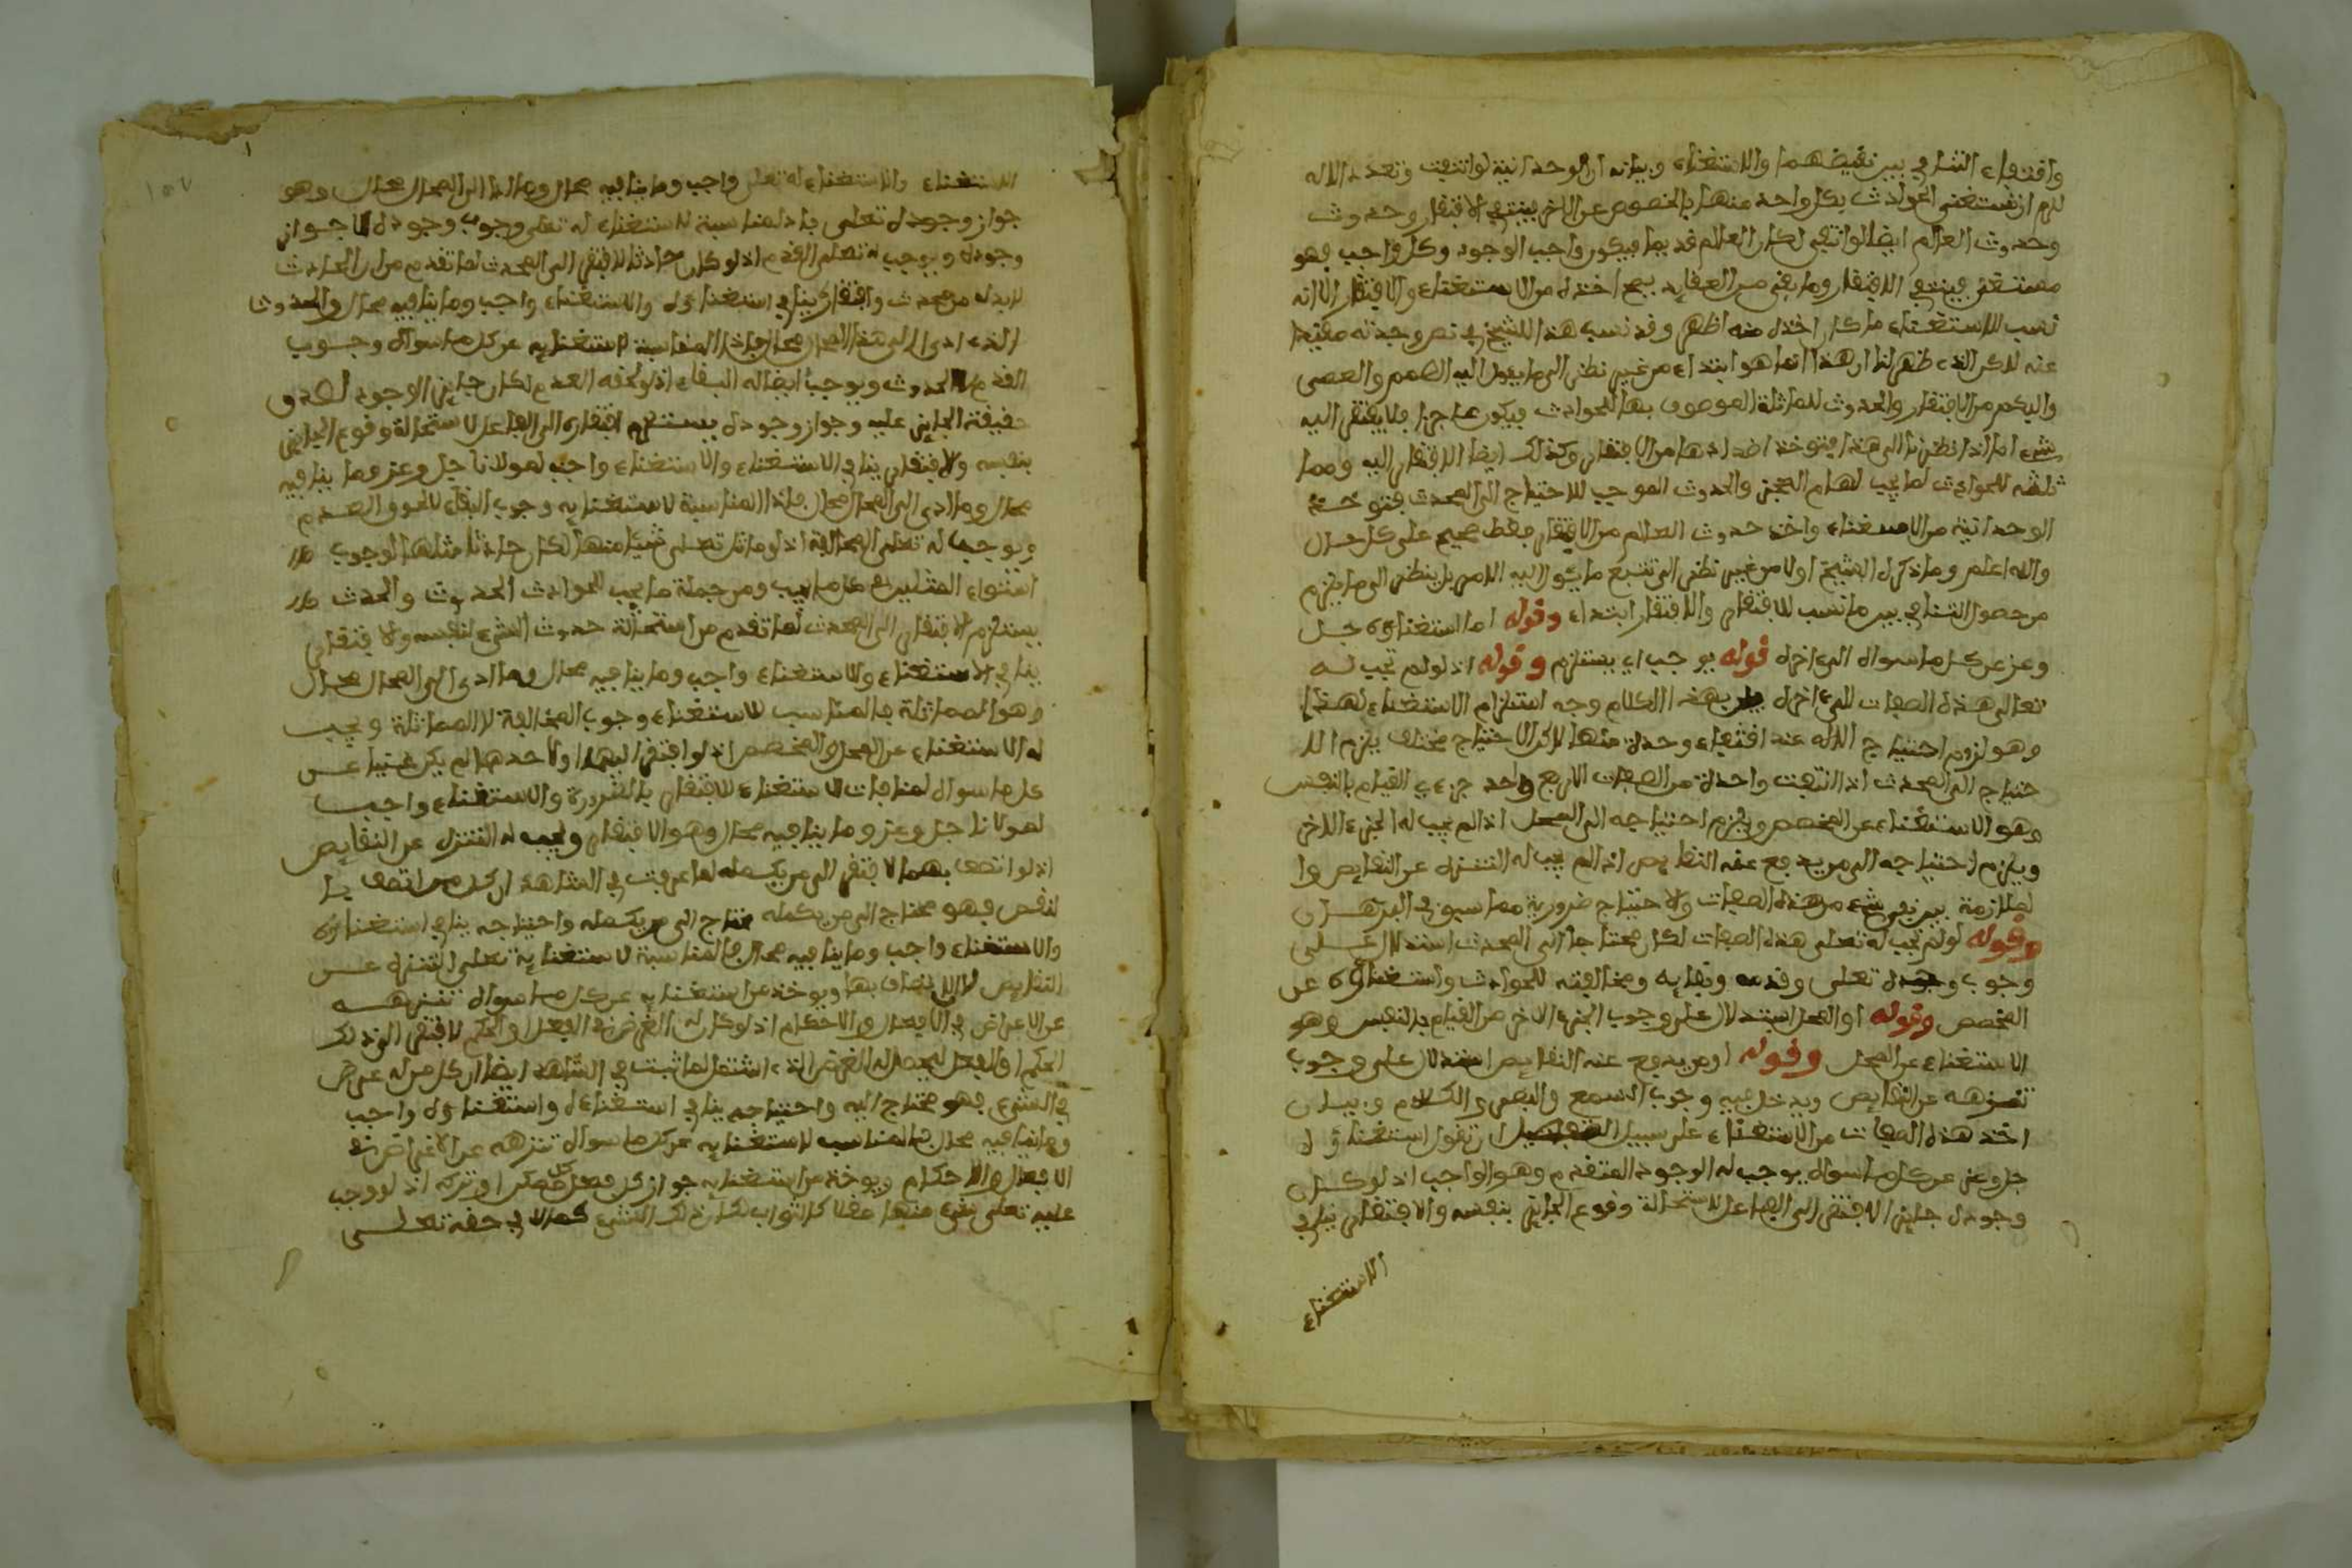 وافتفاء التنافي بين نقيضهما والاستغناء وبيانه ان الوحدانية لو انتفت وتعدد الاله
لزم ان تستغني الحوادث بكل واحد منهما بالخصوص عن الاخر فينتفي الافتقار وحدوث
وحدوث العالم ايضا لو انتفى لكان العالم قديما فيكون واجب الوجود وكل واجب فهو
مستغن فينتفي الافتقار وما بقي من العقايد يصح اخذه من الاستغناء والافتقار الا انه
نسب للاستغناء ما كان اخذه منه اظهر وقد نسب هذا للشيخ في نص وجدته مقيدا
عنه لاكن الذي ظهر لنا ان هذا انما هو ابتداء من غير نظر الى ما يؤول اليه الصمم والعمى
والبكم من الافتقار والحدوث للمماثلة الموصوف بها للحوادث فيكون عاجزا فلا يفتقر اليه
شيء اما اذا نظرنا الى هذا فتوخذ اضدادها من الافتقار وكذلك ايضا الافتقار اليه ومما
ثلثه للحوادث لما يجب لها من العجز والحدوث الموجب للاحتياج الى المحدث فتوخذ
الوحدانية من الاستغناء واخذ حدوث العالم من الافتقار فقط صحيح على كل حال
والله اعلم وما ذكره الشيخ اولا من غير نظر الى تتبع ما يئول اليه الامر بل ينظر الى ما يلزم
من حصول التنافي بين ما نسب للافتقار والافتقار ابتداء وقوله اما استغناؤه جل
وعز عن كل ما سواه الى اخره قوله يوجب اي يستلزم وقوله اذ لو لم تجب له
تعالى هذه الصفات الى اخره بهذا الكلام وجه استلزام الاستغناء لهذا
وهو لزوم احتياج الاله عند انتفاء وحدة منها لاكن الاحتياج مختلف يلزم الا
حتياج الى المحدث اذا انتفت واحدة من الصفات الاربع واحد جزءي القيام بالنفس
وهو الاستغناء عن المخصص ويلزم احتياجه الى المحل اذا لم يجب له الجزء الاخر
ويلزم احتياجه الى من يدفع عنه النقايص اذا لم يجب له التنزه عن النقايص وا
لملازمة بين نفي شيء من هذه الصفات والاحتياج ضرورية مما سبق في البرهان
وقوله لو لم تجب له تعلى هذه الصفات لكان محتاجا الى المحدث استدلال على
وجوب وجوده تعلى وقدمه وبقايه ومخالفته للحوادث واستغناؤه عن
المخصص وقوله او المحل استدلال على وجوب الجزء الاخر من القيام بالنفس وهو
الاستغناء عن المحل وقوله او من يدفع عنه النقايص استدلال على وجوب
تنزهه عن النقايص ويدخل فيه وجوب السمع والبصر والكلام وبيان
اخذ هذه الصفات من الاستغناء على سبيل التفصيل ان تقول استغناؤه
جل وعز عن كل ما سواه يوجب له الوجود المتقدم وهو الواجب اذ لو كان
وجوده جايزا لافتقر الى الفاعل لاستحالة وقوع الجايز بنفسه والافتقار ينافي
الاستغناء
الاستغناء والاستغناء له تعلى واجب وما ينافيه محال وما ادى الى المحال محال وهو
جواز وجوده تعلى فاذا المناسبة لاستغناء له تعلى وجوب وجوده لا جواز
وجوده ويوجب له تعلى القدم اذ لو كان حادثا لافتقر الى المحدث لما تقدم من ان الحادث
لابد له من محدث وافتقاره ينافي استغناؤه والاستغناء واجب وما ينافيه محال والحدوث
الذي ادى الى هذا المحال محال فاذا المناسبة لاستغنايه عن كل ما سواه وجوب
القدم لا الحدوث ويوجب ايضا له البقاء اذ لو لحقه العدم لكان جايز الوجود لصدق
حقيقة الجايز عليه وجواز وجوده يستلزم افتقاره الى الفاعل لاستحالة وقوع الجايز
بنفسه والافتقار ينافي الاستغناء والاستغناء واجب لمولانا جل وعز وما ينافيه
محال وما ادى الى المحال محال فاذا المناسبة لاستغنايه وجوب البقاء لا لحوق العدم
ويوجب له تعلى المخالفة اذ لو ماثل تعلى شيئا منها لكان حادثا مثلها لوجوب
استواء المثلين في ما يجب ومن جملة ما يجب للحوادث الحدوث والحدث
يستلزم الافتقار الى المحدث لما تقدم من استحالة حدوث الشيء لنفسه والافتقار
ينافي الاستغناء والاستغناء واجب وما ينافيه محال وما ادى الى المحال محال
وهو المماثلة فالمناسب للاستغناء وجوب المخالفة لا المماثلة ويجب
له الاستغناء عن المحل والمخصص اذ لو افتقر اليهما او لاحدهما لم يكن غنيا عن
كل ما سواه لمنافات الاستغناء للافتقار بالضرورة والاستغناء واجب
لمولانا جل وعز وما ينافيه محال وهو الافتقار ويجب له التنزه عن النقايص
اذ لو اتصف بها لافتقر الى من يكمله لما عرفت في الشاهد ان كل من اتصف با
لنقص فهو محتاج الى من يكمله واحتياجه ينافي استغناؤه
والاستغناء واجب وما ينافيه محال فالمناسبة لاستغنايه تعلى التنزه عن
النقايص لا الاتصاف بها ويوخذ من استغنايه عن كل ما سواه تنزهه
عن الاغراض في الافعال والاحكام اذ لو كان له الغرض في الفعل او الحكم لافتقر الى ذلك
الحكم او الفعل ليحصل له الغرض الذي اشتمل لما ثبت في الشاهد ايضا ان كل من له غرض
في الشيء فهو محتاج اليه واحتياجه ينافي استغناءه واستغناؤه واجب
وما ينافيه محال فالمناسب لاستغنايه عن كل ما سواه تنزهه عن الاغراض في
الافعال والاحكام ويوخذ من استغنايه جواز كل فعل ممكن او تركه اذ لو وجب
عليه تعلى شيء منها عقلا كالثواب لكان ذلك الشيء كمالا في حقه تعلى